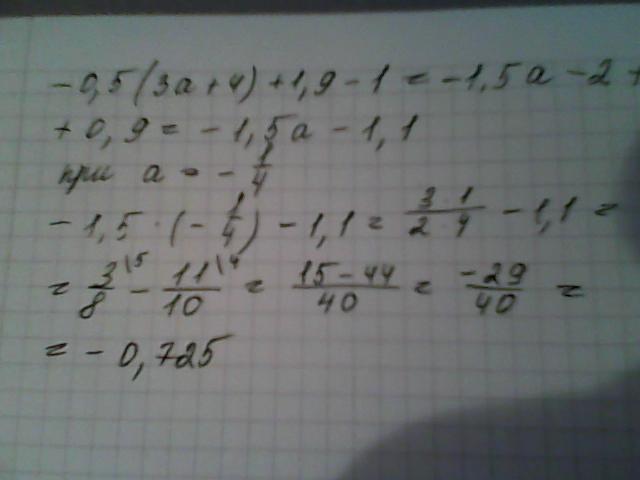 -0,5(3a+4)+1,9-1=-1,5a-2+
+0,9=-1,5a-1,1
при a=-1/4
-1,5·(-1/4)-1,1=3·1/2·4-1,1=
=3\5/8-11\4/10=15-44/40=-29/40=
=-0,725